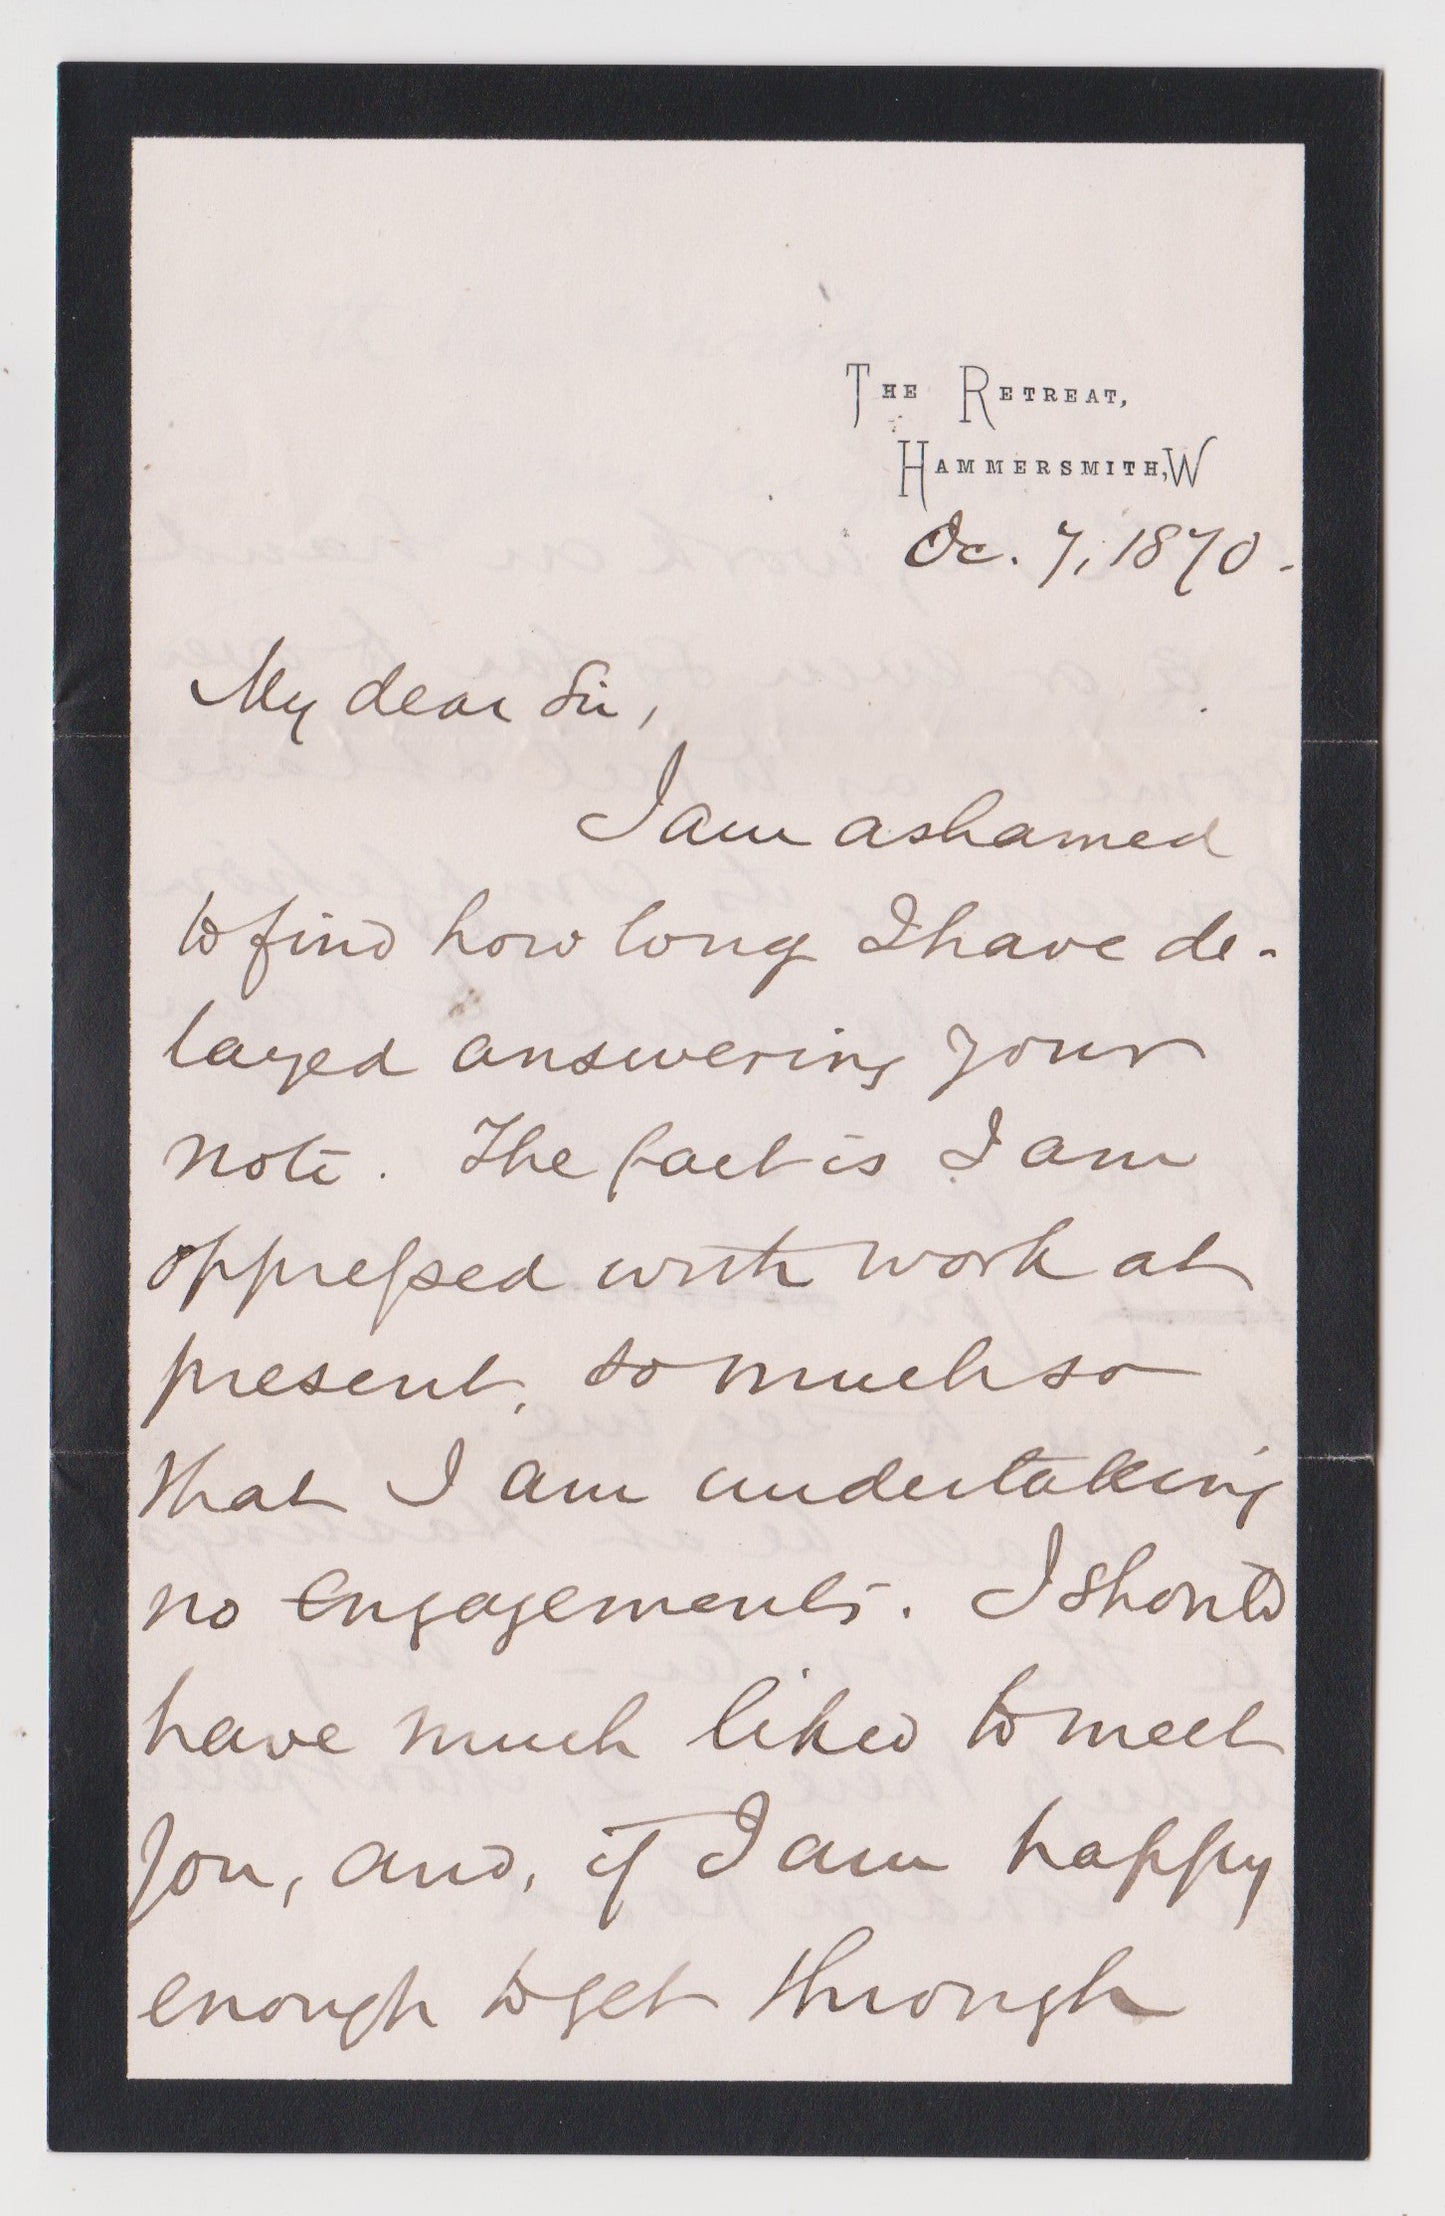 THE RETREAT,
HAMMERSMITH, W
Oc. 7, 1870.
My dear Sir,
I am ashamed
to find how long I have de-
layed answering your
note. The fact is I am
oppressed with work at
present, so much so
that I am undertaking
no engagements. I should
have much liked to meet
you, and, if I am happy
enough to get through